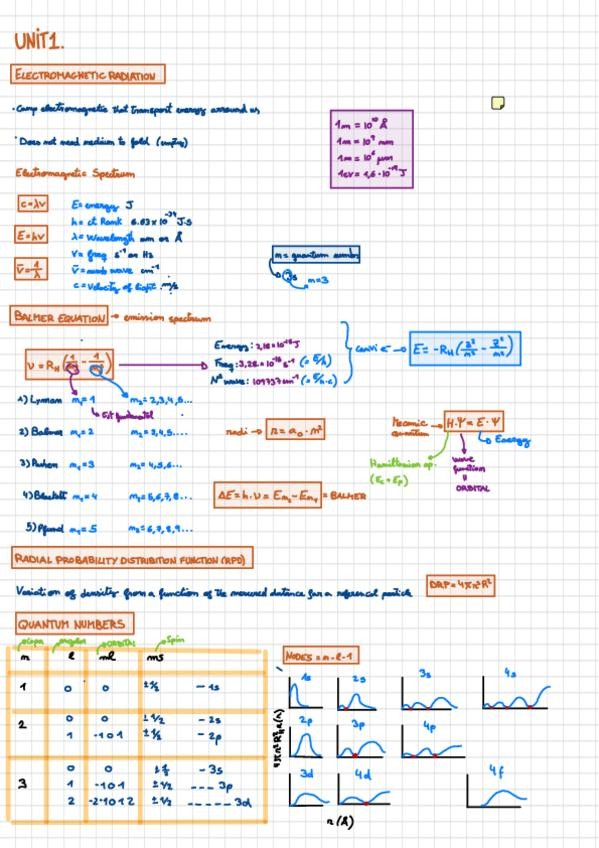 UNIT1.
ELECTROMAGNETIC RADIATION
· Camp electromagnetic that transport energy arround us,
· Does not need medium to fold (empty)
1m = 10¹⁰ Å
1m = 10⁹ nm
1m = 10⁶ μm
1eV = 1,6·10⁻¹⁹ J
Electromagnetic Spectrum
c=λν
E=hν
ν̄=1/λ
E= energy J
h= ct Plank 6.63×10⁻³⁴ J·s
λ= Wavelength nm or Å
ν= freq s⁻¹ or Hz
ν̄= numb wave cm⁻¹
c= Velocity of light m/s
n= quantum number
3s n=3
BALMER EQUATION → emission spectrum
ν = R_H (1/n₁² - 1/n₂²)
Energy: 2,18×10⁻¹⁸ J
Freq: 3,28·10¹⁵ s⁻¹ (= E/h)
Nº wave: 109737 cm⁻¹ (= E/h·c)
E = -R_H (Z²/n² - Z²/n²)
1) Lyman n₁=1 n₂= 2,3,4,5...
Est fundamental
2) Balmer n₁=2 n₂= 3,4,5....
3) Pashen n₁=3 n₂= 4,5,6...
4) Brackett n₁=4 n₂= 5,6,7,8...
5) Pfund n₁=5 n₂= 6,7,8,9...
radi → r = a₀·n²
ΔE = h·ν = En₂ - En₁ = BALMER
quantum
H·Ψ = E·Ψ
Energy
Hamiltonian op.
(Ec+Ep)
wave
function
ORBITAL
RADIAL PROBABILITY DISTRIBUTION FUNCTION (RPD)
Variation of density from a function of the mesured distance for a referencial particle
DRP = 4πr²R²
QUANTUM NUMBERS
capa angular ORBITAL Spin
n l ml ms
1 0 0 ±1/2 - 1s
2 0 0 ±1/2 - 2s
1 -1 0 1 ±1/2 - 2p
3 0 0 ±1/2 - 3s
1 -1 0 1 ±1/2 --- 3p
2 -2 -1 0 1 2 ±1/2 ----- 3d
NODES = n-l-1
1s 2s 3s 4s
2p 3p 4p
3d 4d 4f
r (Å)